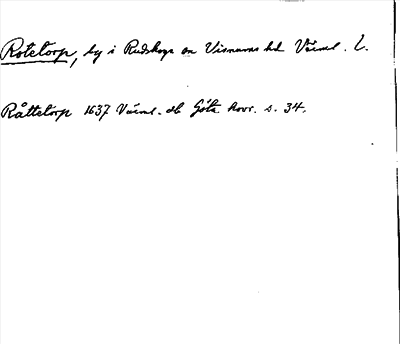 Rotetorp, by i Rudskoga sn Visnums hd Värml. L.
Råttetorp 1637 Värml. db Göta hovr. s. 34.